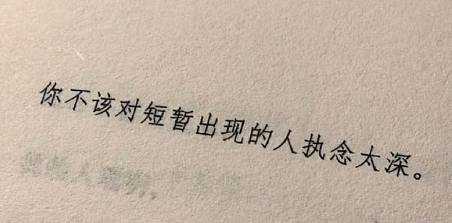 你不该对短暂出现的人执念太深。